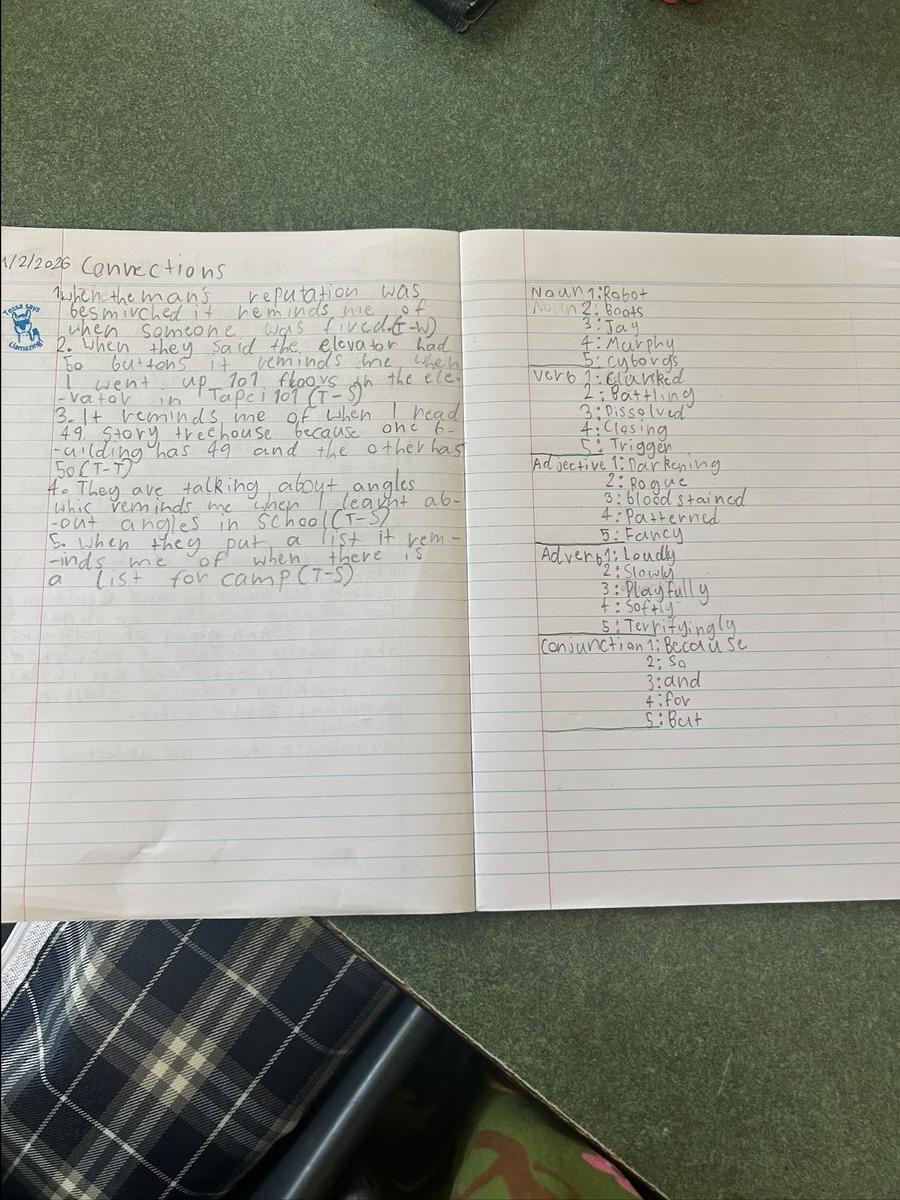 1/2/2026 Connections
1. when the man's reputation was
besmirched it reminds me of
when someone was fired.(T-W)
2. When they said the elevator had
50 buttons it reminds me when
I went up 101 floors in the ele-
-vator in Tapei 101 (T-S)
3. It reminds me of when I read
49. Story treehouse because one b-
-uilding has 49 and the other has
50(T-T)
4. They are talking about angles
whic reminds me when I learnt ab-
-out angles in School(T-S)
5. When they put a list it rem-
-inds me of when there is
a list for camp(T-S)
Tessa says
Llamazing!
Noun 1:Robot
Noun 2: Boots
3: Jay
4: Murphy
5: Cyborgs
Verb 1: Clunked
2: Battling
3: Dissolved
4: Closing
5: Trigger
Adjective 1: Darkening
2: Rogue
3: blood stained
4: Patterned
5: Fancy
Adverb1: Loudly
2: Slowly
3: Playfully
4: Softly
5: Terrifyingly
Conjunction 1: Because
2: So
3: and
4: for
5: But